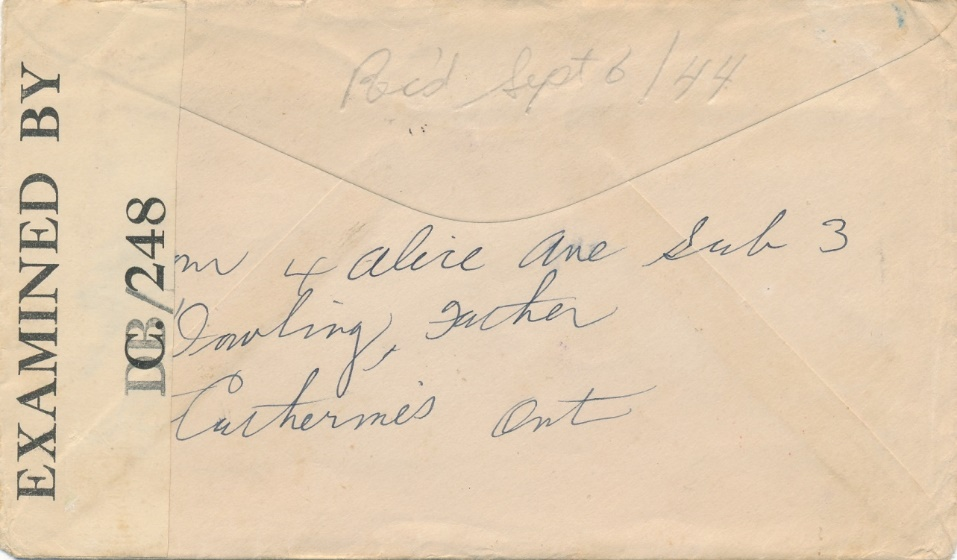 EXAMINED BY
DC./248
Rec'd Sept 6/44
4 Alice Ave Sub 3
Dowling, Father
Catherines Ont